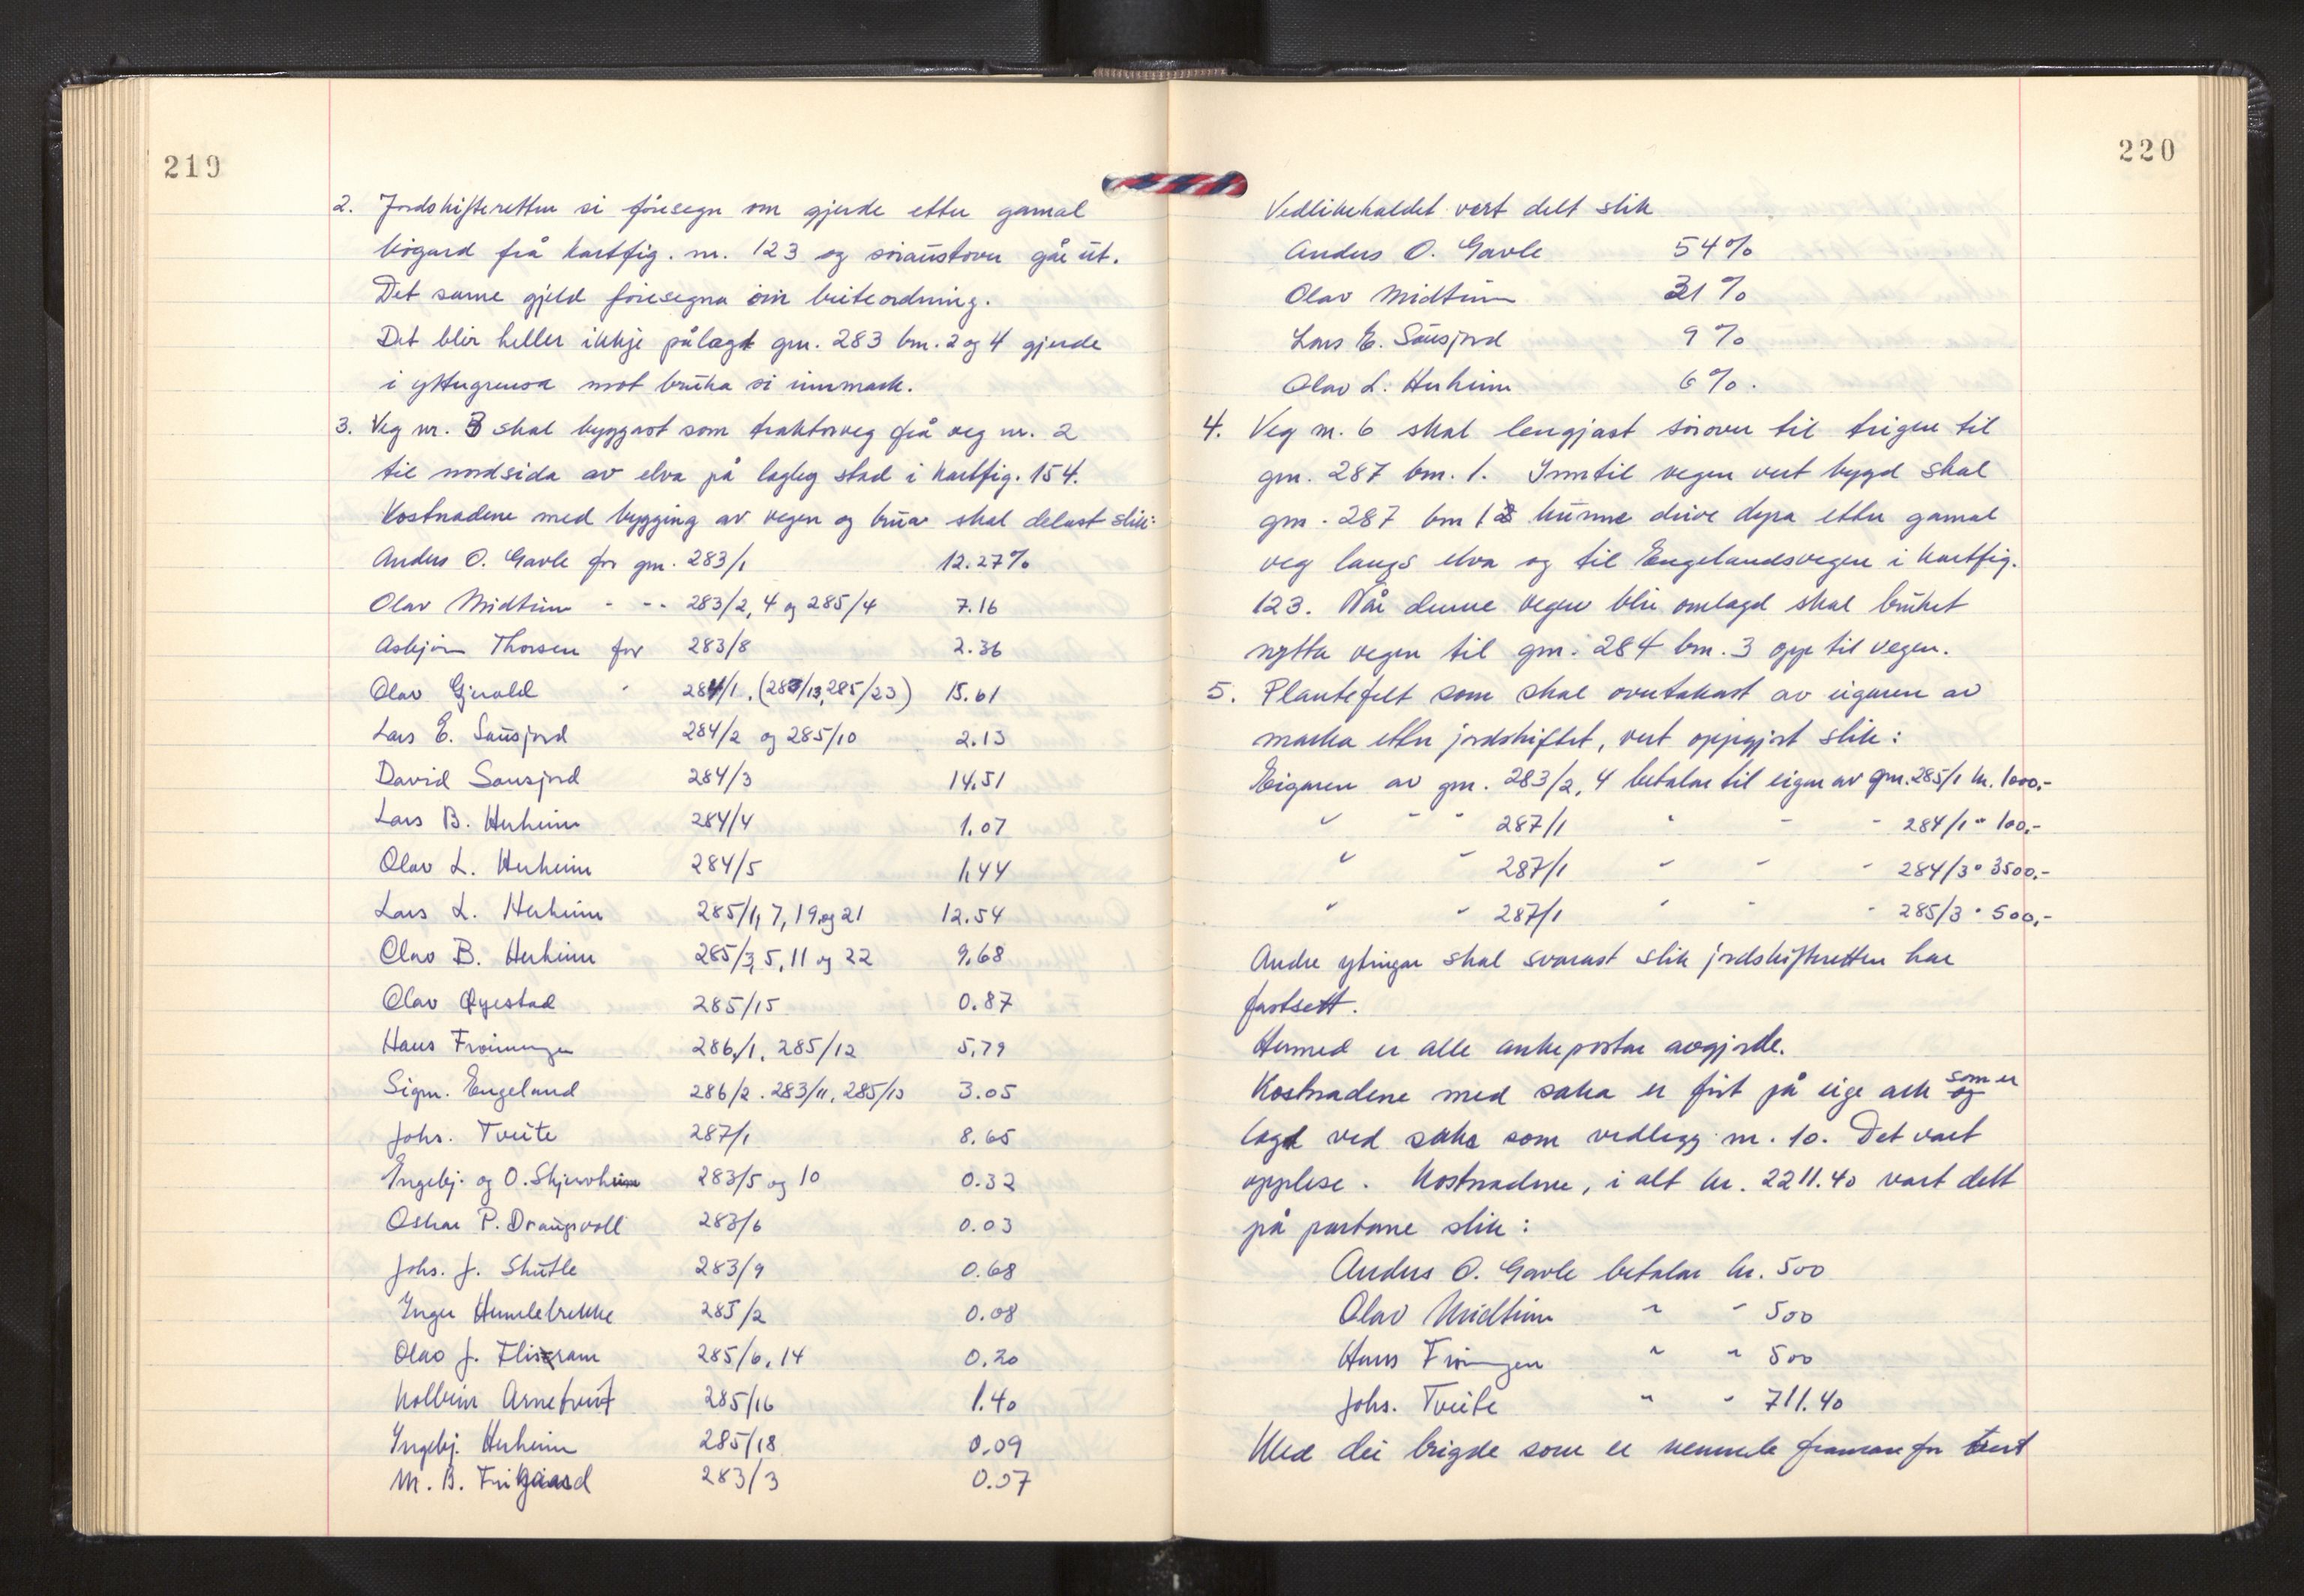 219
2. Jordskifteretten si føresegn om gjerde etter gamal
bøgard frå kartfig. nr. 123 og søraustover går ut.
Det same gjeld føresegna om beiteordning.
Det blir heller ikkje pålagt gnr. 283 bnr. 2 og 4 gjerde
i yttergrensa mot bruka si innmark.
3. Veg nr. 3 skal byggast som traktorveg frå veg nr. 2
til nordsida av elva på lagleg stad i kartfig. 154.
Kostnadene med bygging av vegen og brua skal delast slik:
Anders O. Gavle for gnr. 283/1 12.27%
Olav Midttun - -- 283/2, 4 og 285/4 7.16
Asbjørn Thorsen for 283/8 2.36
Olav Gjerald " 284/1. (283/13, 285/23) 15.61
Lars E. Sausjord 284/2 og 285/10 2.13
David Sausjord 284/3 14.51
Lars B. Herheim 284/4 1.07
Olav L. Herheim 284/5 1,44
Lars L. Herheim 285/1, 7, 19 og 21 12.54
Olav B. Herheim 285/3, 5, 11 og 22 9.68
Olav Øyestad 285/15 0.87
Hans Frøiningen 286/1, 285/12 5,79
Sigm. Engeland 286/2. 283/11, 285/13 3.05
Johs. Tveite 287/1 8.65
Ingebj. og O. Skjervheim 283/5 og 10 0.32
Oskar P. Draugsvoll 283/6 0.03
Johs. J. Skutle 283/9 0.68
Inger Humlebrekke 285/2 0.08
Olav J. Flisram 285/6, 14 0.20
Kolbein Arnetveit 285/16 1.40
Ingebj. Herheim 285/18 0.09
M. B. 283/3 0.07
220
Vedlikehaldet vert delt slik
Anders O. Gavle 54%
Olav Midttun 31%
Lars E. Sausjord 9%
Olav L. Herheim 6%.
4. Veg nr. 6 skal lengjast sørover til teigen til
gnr. 287 bnr. 1. Inntil vegen vert bygd skal
gnr. 287 bnr 1 kunne drive dyra etter gamal
veg langs elva og til Engelandsvegen i kartfig.
123. Når denne vegen blir omlagd skal bruket
nytta vegen til gnr. 284 bnr. 3 opp til vegen.
5. Plantefelt som skal overtakast av eigaren av
marka etter jordskiftet, vert oppgjort slik:
Eigaren av gnr. 283/2, 4 betalar til eigar av gnr. 285/1 kr. 1000,-
" " " 287/1 " " " 284/1 " 100,-
" " 287/1 " " " 284/3 " 3500,-
" " 287/1 " " " 285/3 " 500,-
Andre ytingar skal svarast slik jordskifteretten har
fastsett.
Hermed er alle ankepostar avgjorde.
Kostnadene med saka er ført på eige ark som er
lagt ved saka som vedlegg nr. 10. Det vart
opplese. Kostnadene, i alt kr. 2211.40 vart delt
på partane slik:
Anders O. Gavle betalar kr. 500
Olav Midttun " " 500
Hans Frøiningen " " 500
Johs. Tveite " " 711.40
Med dei brigde som er nemnde framanfor vert